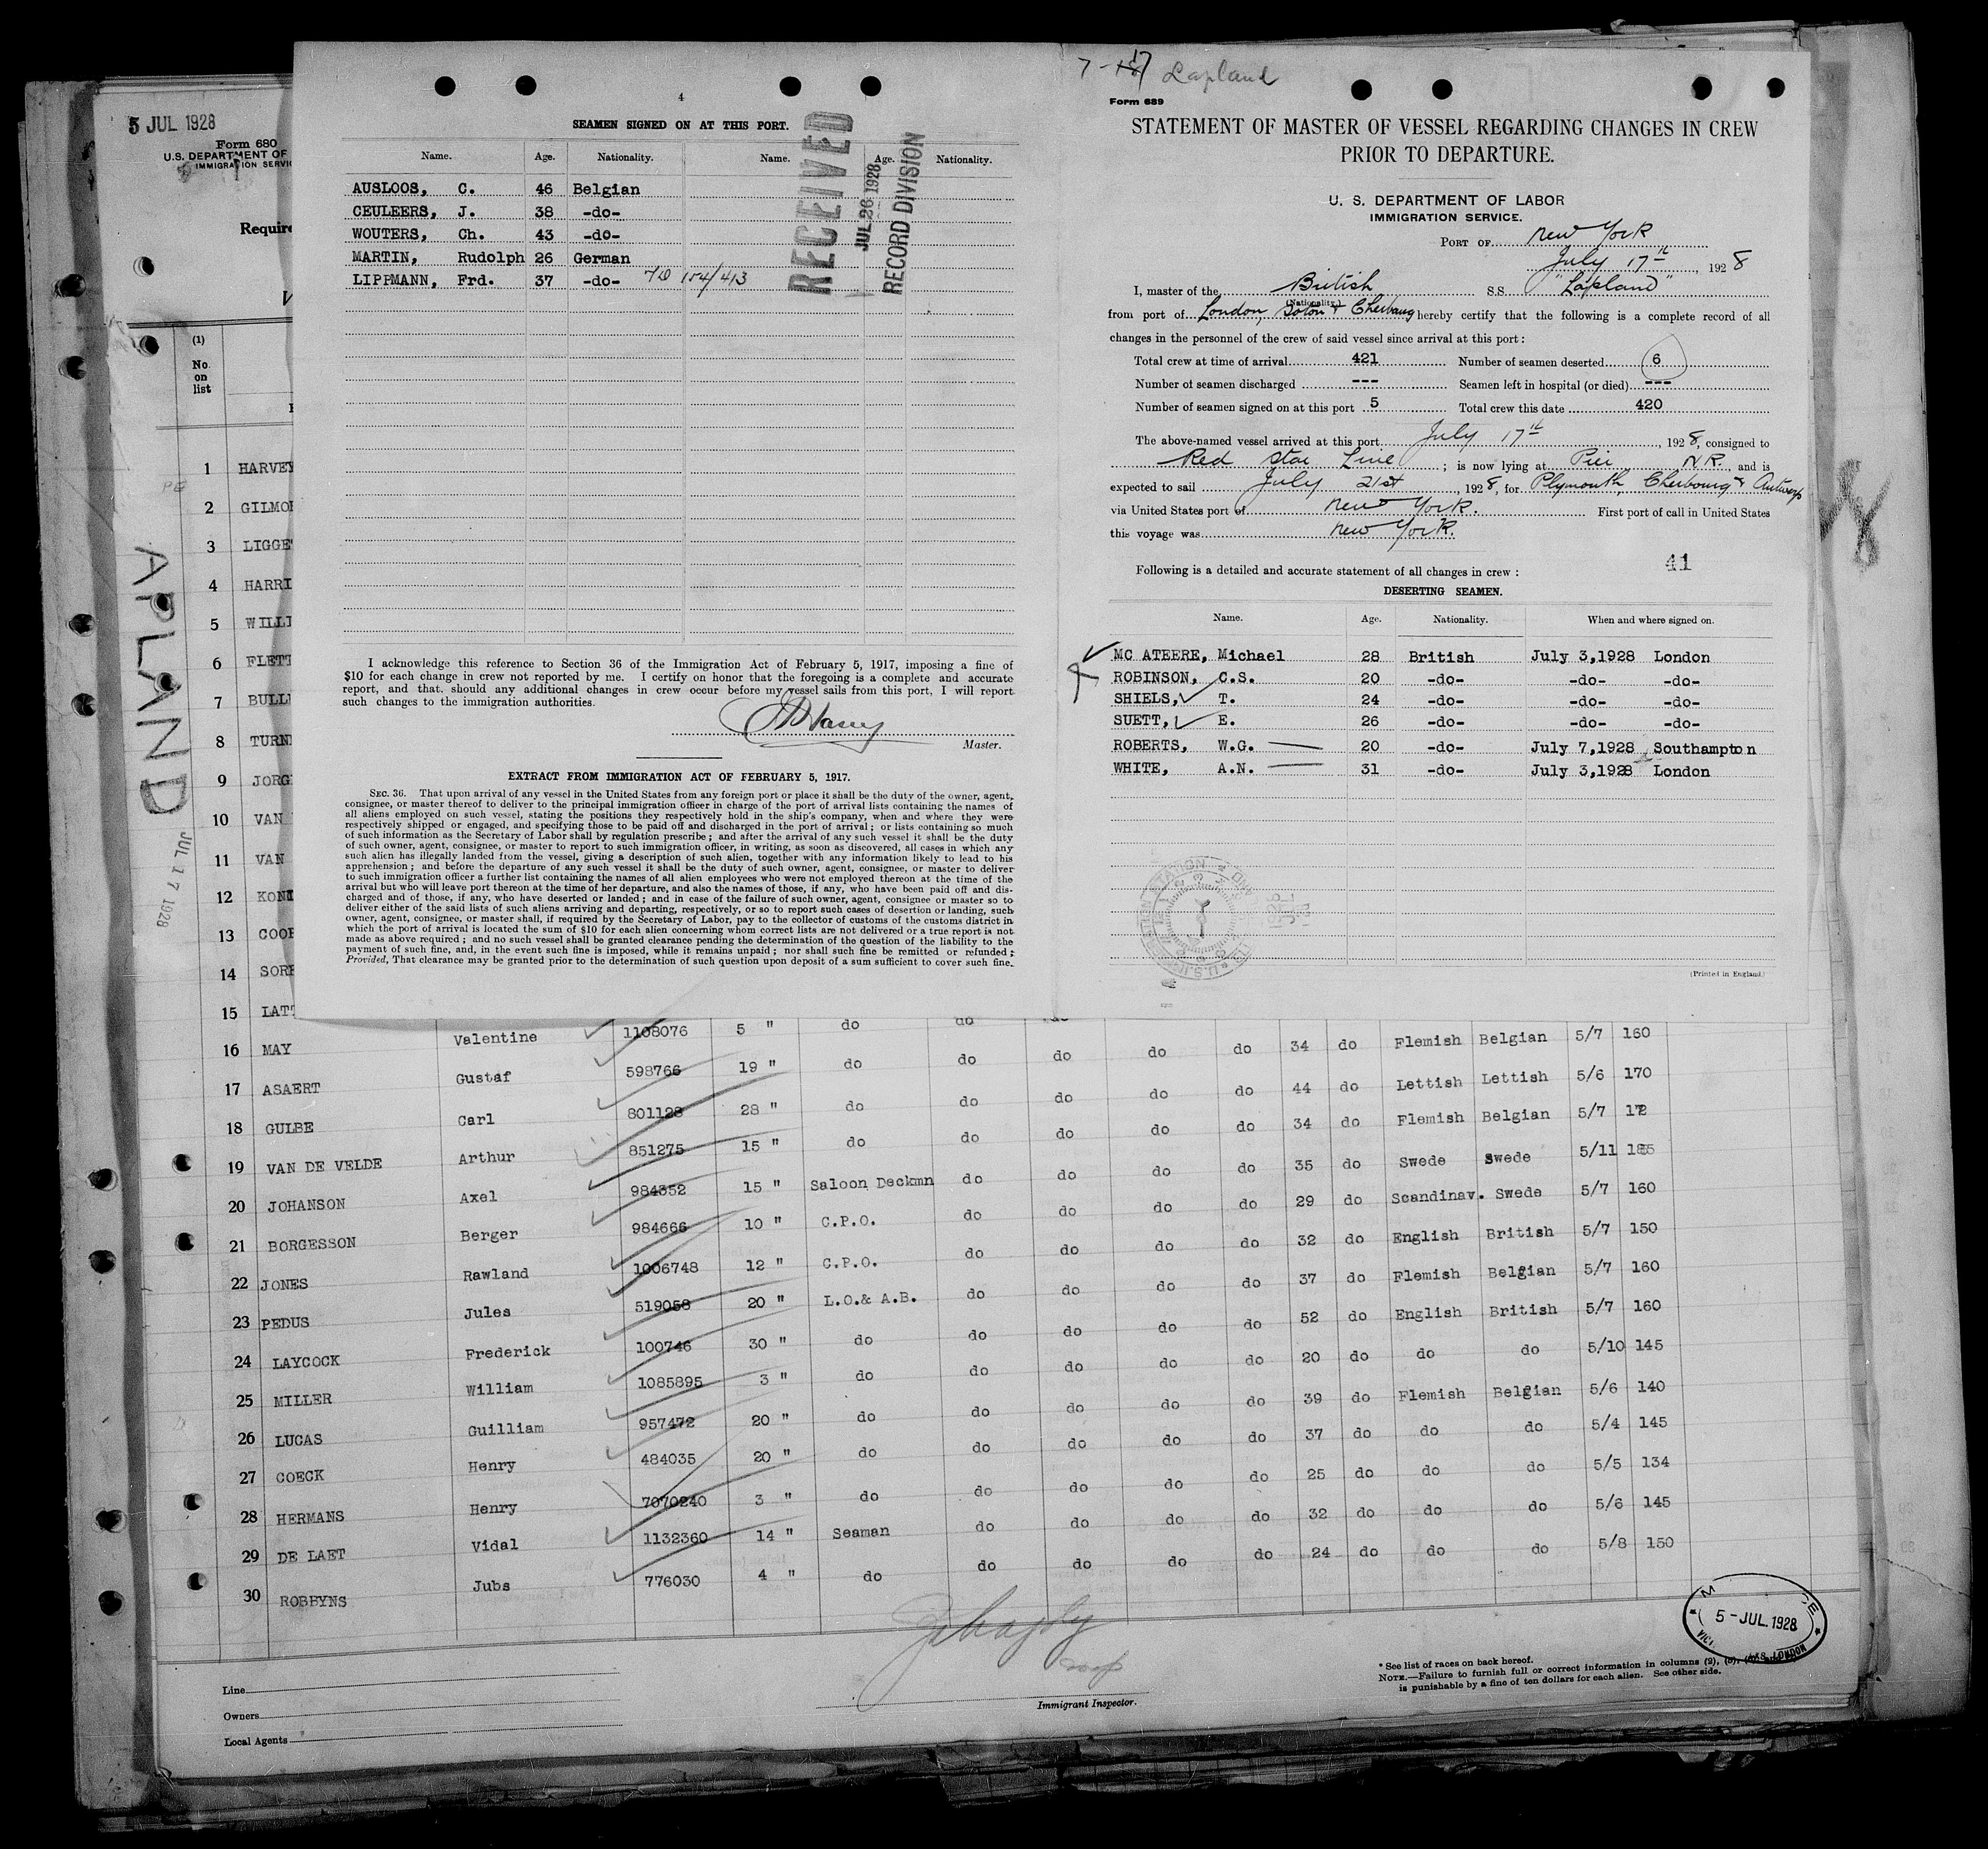 5 JUL 1928
Form 680
U.S. DEPARTMENT OF
IMMIGRATION SERVIC
Require
(1)
No.
on
list
LAPLAND
JUL 17 1928
1 HARVEY
2 GILMO
3 LIGGE
4 HARRI
5 WILLI
6 FLETT
7 BULL
8 TURN
9 JORG
10 VAN
11 VAN
12 KON
13 COO
14 SOR
15 LAT
4
SEAMEN SIGNED ON AT THIS PORT.
Name. Age. Nationality. Name. Age. Nationality.
AUSLOOS, C. 46 Belgian
CEULEERS, J. 38 -do-
WOUTERS, Ch. 43 -do-
MARTIN, Rudolph 26 German
LIPPMANN, Frd. 37 -do- 710 154/413
RECEIVED
JUL 26 1928
RECORD DIVISION
I acknowledge this reference to Section 36 of the Immigration Act of February 5, 1917, imposing a fine of
$10 for each change in crew not reported by me. I certify on honor that the foregoing is a complete and accurate
report, and that should any additional changes in crew occur before my vessel sails from this port, I will report
such changes to the immigration authorities.
Master.
EXTRACT FROM IMMIGRATION ACT OF FEBRUARY 5, 1917.
SEC. 36. That upon arrival of any vessel in the United States from any foreign port or place it shall be the duty of the owner, agent,
consignee, or master thereof to deliver to the principal immigration officer in charge of the port of arrival lists containing the names of
all aliens employed on such vessel, stating the positions they respectively hold in the ship's company, when and where they were
respectively shipped or engaged, and specifying those to be paid off and discharged in the port of arrival; or lists containing so much
of such information as the Secretary of Labor shall by regulation prescribe; and after the arrival of any such vessel it shall be the duty
of such owner, agent, consignee, or master to report to such immigration officer, in writing, as soon as discovered, all cases in which any
such alien has illegally landed from the vessel, giving a description of such alien, together with any information likely to lead to his
apprehension; and before the departure of any such vessel it shall be the duty of such owner, agent, consignee, or master to deliver
to such immigration officer a further list containing the names of all alien employees who were not employed thereon at the time of the
arrival but who will leave port thereon at the time of her departure, and also the names of those, if any, who have been paid off and dis-
charged and of those, if any, who have deserted or landed; and in case of the failure of such owner, agent, consignee or master so to
deliver either of the said lists of such aliens arriving and departing, respectively, or so to report such cases of desertion or landing, such
owner, agent, consignee, or master shall, if required by the Secretary of Labor, pay to the collector of customs of the customs district in
which the port of arrival is located the sum of $10 for each alien concerning whom correct lists are not delivered or a true report is not
made as above required; and no such vessel shall be granted clearance pending the determination of the question of the liability to the
payment of such fine, and, in the event such fine is imposed, while it remains unpaid; nor shall such fine be remitted or refunded:
Provided, That clearance may be granted prior to the determination of such question upon deposit of a sum sufficient to cover such fine.
7-17 Lapland
Form 689
STATEMENT OF MASTER OF VESSEL REGARDING CHANGES IN CREW
PRIOR TO DEPARTURE.
U. S. DEPARTMENT OF LABOR
IMMIGRATION SERVICE.
PORT OF New York
July 17th, 1928
I, master of the British S.S. "Lapland"
(Nationality.)
from port of London, Soton & Cherbourg hereby certify that the following is a complete record of all
changes in the personnel of the crew of said vessel since arrival at this port:
Total crew at time of arrival 421 Number of seamen deserted 6
Number of seamen discharged --- Seamen left in hospital (or died) ---
Number of seamen signed on at this port 5 Total crew this date 420
The above-named vessel arrived at this port July 17th, 1928, consigned to
Red Star Line; is now lying at Pier N.R., and is
expected to sail July 21st, 1928, for Plymouth, Cherbourg & Antwerp
via United States port of New York. First port of call in United States
this voyage was New York.
Following is a detailed and accurate statement of all changes in crew: 41
DESERTING SEAMEN.
Name. Age. Nationality. When and where signed on.
MC ATEERE, Michael 28 British July 3,1928 London
ROBINSON, C.S. 20 -do- -do- -do-
SHIELS, T. 24 -do- -do- -do-
SUETT, E. 26 -do- -do- -do-
ROBERTS, W.G. 20 -do- July 7,1928 Southampton
WHITE, A.N. 31 -do- July 3,1928 London
(Printed in England.)
16 MAY Valentine 1108076 5 " do do
17 ASAERT Gustaf 598766 19 " do do do do do 34 do Flemish Belgian 5/7 160
18 GULBE Carl 801128 28 " do do do do do 44 do Lettish Lettish 5/6 170
19 VAN DE VELDE Arthur 851275 15 " do do do do do 34 do Flemish Belgian 5/7 172
20 JOHANSON Axel 984352 15 " Saloon Deckmn do do do do 35 do Swede Swede 5/11 185
21 BORGESSON Berger 984666 10 " C.P.O. do do do do 29 do Scandinav. Swede 5/7 160
22 JONES Rawland 1006748 12 " C.P.O. do do do do 32 do English British 5/7 150
23 PEDUS Jules 519058 20 " L.O.& A.B. do do do do 37 do Flemish Belgian 5/7 160
24 LAYCOCK Frederick 100746 30 " do do do do do 52 do English British 5/7 160
25 MILLER William 1085895 3 " do do do do do 20 do do do 5/10 145
26 LUCAS Guilliam 957472 20 " do do do do do 39 do Flemish Belgian 5/6 140
27 COECK Henry 484035 20 " do do do do do 37 do do do 5/4 145
28 HERMANS Henry 7070240 3 " do do do do do 25 do do do 5/5 134
29 DE LAET Vidal 1132360 14 " Seaman do do do do 32 do do do 5/6 145
30 ROBBYNS Jubs 776030 4 " do do do do do 24 do do do 5/8 150
Line
Owners
Local Agents
Immigrant Inspector.
5-JUL.1928
LONDON
* See list of races on back hereof.
NOTE.—Failure to furnish full or correct information in columns (2), (5),
is punishable by a fine of ten dollars for each alien. See other side.